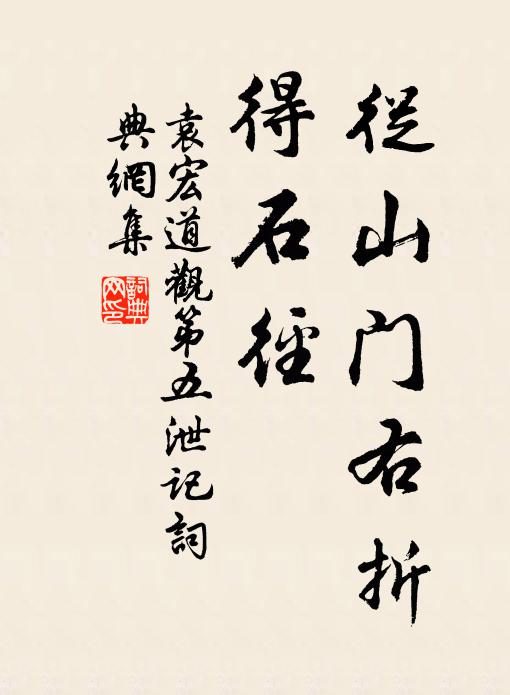 從山门右折
得石徑
袁宏道觀第五泄記詞
典網集
詞典
网印